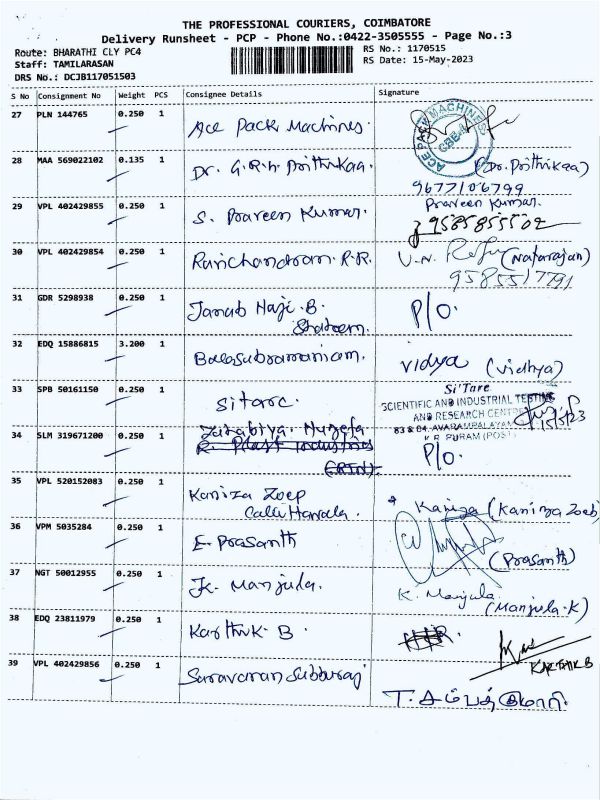 THE PROFESSIONAL COURIERS, COIMBATORE
Delivery Runsheet - PCP - Phone No.:0422-3505555 - Page No.:3
Route: BHARATHI CLY PC4
Staff: TAMILARASAN
DRS No.: DCJB117051503
RS No.: 1170515
RS Date: 15-May-2023
S No Consignment No Weight PCS Consignee Details Signature
27 PLN 144765 0.250 1 Ace Pack Machines.
ACE PACK MACHINES
CBE-4
28 MAA 569022102 0.135 1 Dr. G.R.h Prithikaa. (Dr. Prithikaa)
9677106799
29 VPL 402429855 0.250 1 S. Praveen Kumar. Praveen Kumar.
9585855502
30 VPL 402429854 0.250 1 Ramchandran. R.R. V.N. (Natarajan)
9585517791
31 GDR 5298938 0.250 1 Janab Haji. B. P/O.
32 EDQ 15886815 3.200 1 Balasubramaniam. vidya (vidhya)
33 SPB 50161150 0.250 1 Sitarc.
Si'Tarc
SCIENTIFIC AND INDUSTRIAL TESTING
AND RESEARCH CENTRE
83 & 84, AVARAMPALAYAM
K.R. PURAM (POST)
15/5/23
34 SLM 319671200 0.250 1 P/O.
35 VPL 520152083 0.250 1 Kaniza Zoep Kaniza (Kaniza Zoeb)
36 VPM 5035284 0.250 1 E. Prasanth (Prasanth)
37 NGT 50012955 0.250 1 K. Manjula. K. Manjula.
(Manjula-K)
38 EDQ 23811979 0.250 1 Karthik B
KARTHIK B
39 VPL 402429856 0.250 1 Saravanan Subburaj